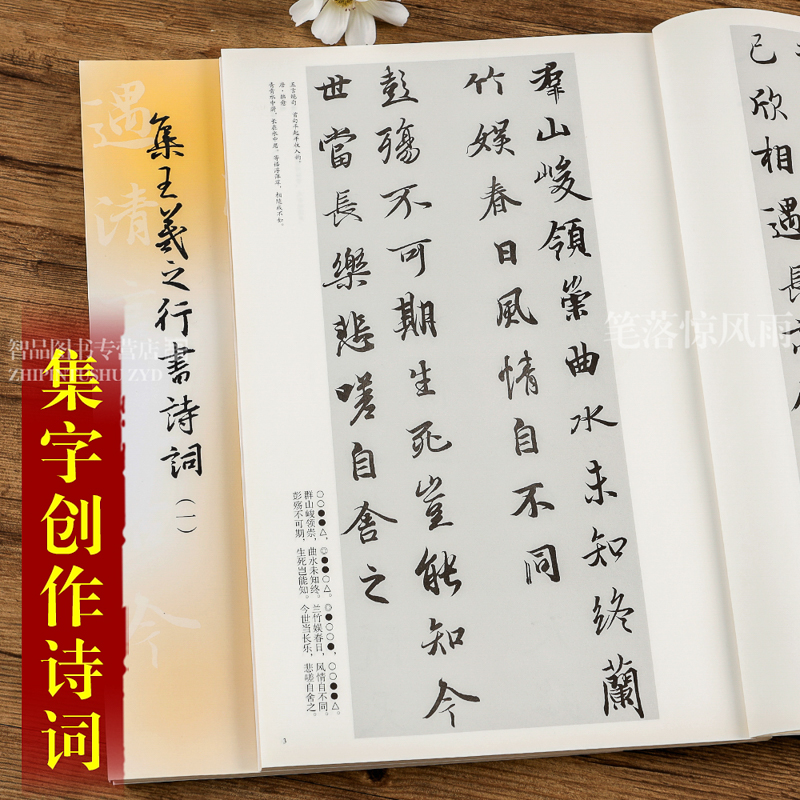 集字创作诗词
智品图书专营店
ZHIPINTUSHUZYD
集王羲之行書詩詞(一)
遇
清
今
羣山峻領崇曲水未知終蘭
竹娱春日風情自不同
彭殤不可期生死豈能知今
世當長樂悲嗟自舍之
群山峻领崇,曲水未知终。兰竹娱春日,风情自不同。
彭殇不可期,生死岂能知。今世当长乐,悲嗟自舍之。
3
笔落惊风雨
已欣相遇長